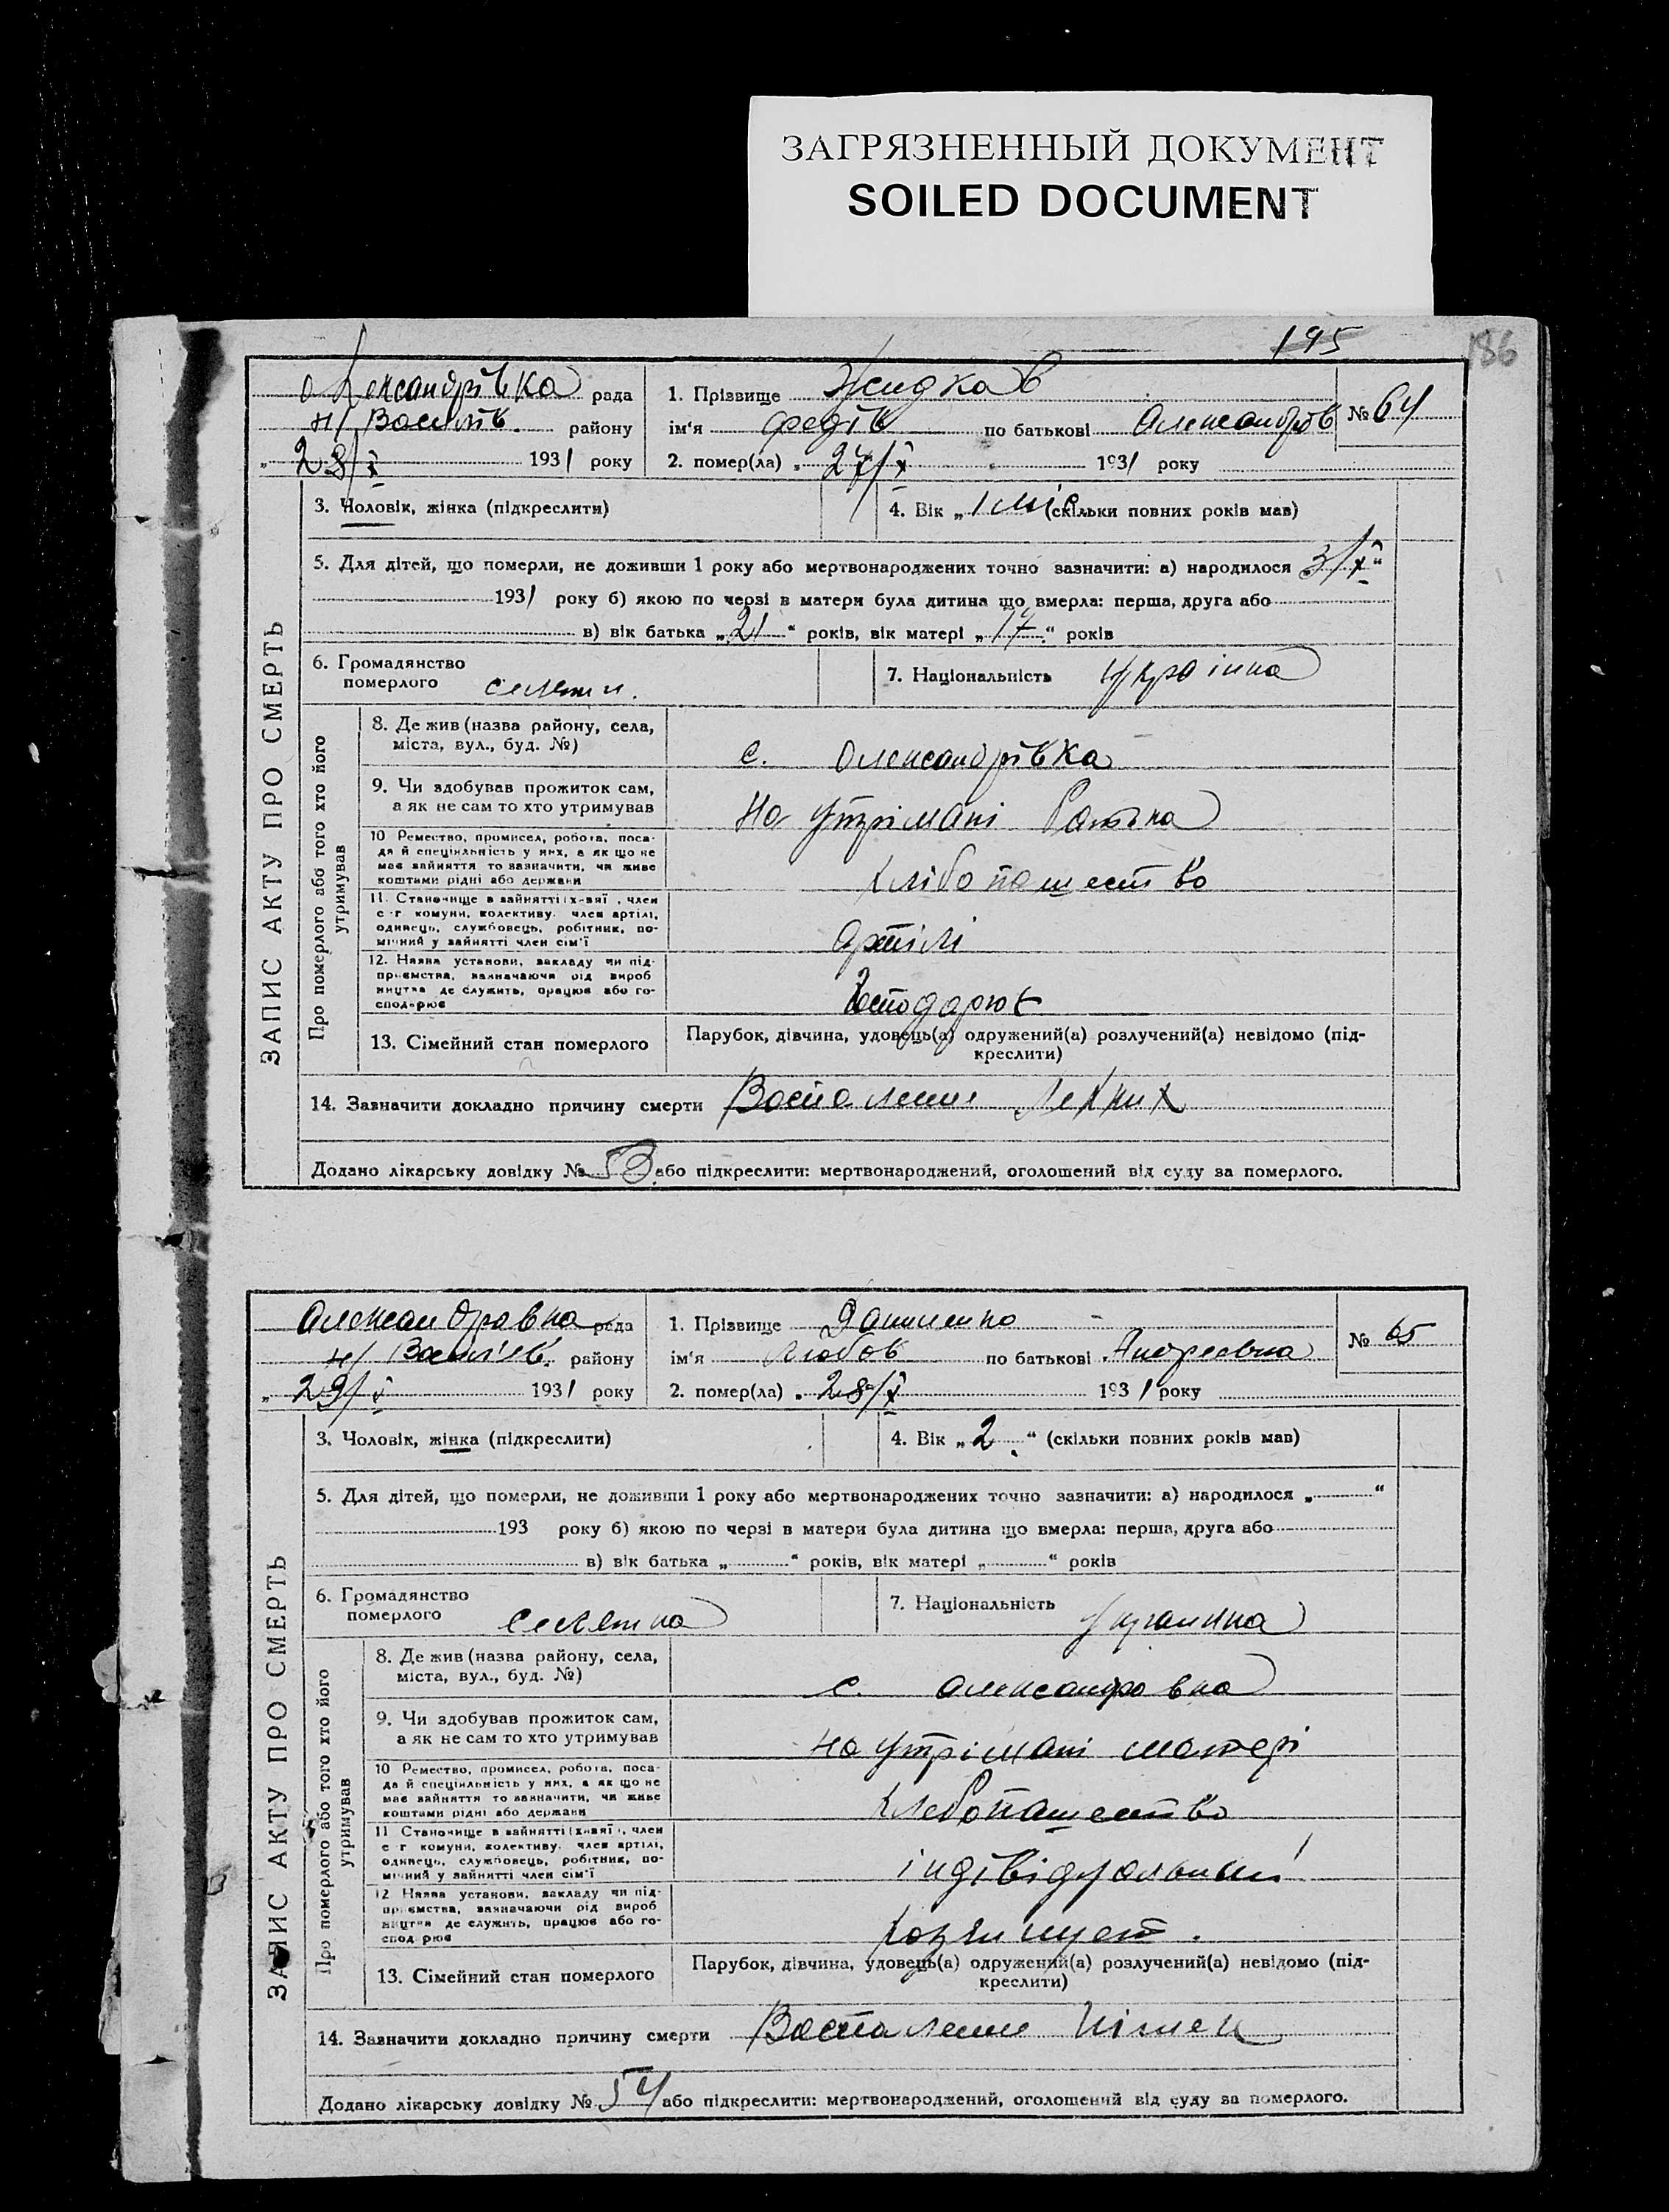 ЗАГРЯЗНЕННЫЙ ДОКУМЕНТ
SOILED DOCUMENT
195
186
ЗАПИС АКТУ ПРО СМЕРТЬ
Олександрівка рада
н/Василів. району
„ 28/X 1931 року
1. Прізвище Жидков
ім'я Федів по батькові Александров
№ 64
2. помер(ла) „ 27/X 1931 року
3. Чоловік, жінка (підкреслити)
4. Вік „ 1 міс (скільки повних років мав)
5. Для дітей, що померли, не доживши 1 року або мертвонароджених точно зазначити: а) народилося 3/X“
1931 року б) якою по черзі в матери була дитина що вмерла: перша, друга або
в) вік батька „21“ років, вік матері „17“ років
6. Громадянство
померлого селян.
7. Національність Українка
Про померлого або того хто його
утримував
8. Де жив (назва району, села,
міста, вул., буд. №)
с. Олександрівка
9. Чи здобував прожиток сам,
а як не сам то хто утримував
На утрімані батька
10 Ремество, промисел, робота, поса-
да й спеціяльність у них, а як що не
має зайняття то зазначити, чи живе
коштами рідні або держави
хлібопашество
11. Становище в зайнятті (хазяї, член
с-г комуни, колективу, член артілі,
одинець, службовець, робітник, по-
мічний у зайнятті член сім'ї
Артілі
12. Назва установи, закладу чи під-
приємства, зазначаючи рід вироб
ництва де служить, працює або го-
сподарює
Господарює
13. Сімейний стан померлого
Парубок, дівчина, удовець(а) одружений(а) розлучений(а) невідомо (під-
креслити)
14. Зазначити докладно причину смерти Воспаление Легких
Додано лікарську довідку № 53 або підкреслити: мертвонароджений, оголошений від суду за померлого.
ЗАПИС АКТУ ПРО СМЕРТЬ
Александровка рада
н/Василів. району
„ 29/X 1931 року
1. Прізвище Даниленко
ім'я Любов по батькові Андреевна
№ 65
2. помер(ла) „ 28/X 1931 року
3. Чоловік, жінка (підкреслити)
4. Вік „2“ (скільки повних років мав)
5. Для дітей, що померли, не доживши 1 року або мертвонароджених точно зазначити: а) народилося „ “
193 року б) якою по черзі в матери була дитина що вмерла: перша, друга або
в) вік батька „ “ років, вік матері „ “ років
6. Громадянство
померлого селянка
7. Національність Украинка
Про померлого або того хто його
утримував
8. Де жив (назва району, села,
міста, вул., буд. №)
с. Александровка
9. Чи здобував прожиток сам,
а як не сам то хто утримував
на утрімані матері
10 Ремество, промисел, робота, поса-
да й спеціяльність у них, а як що не
має зайняття то зазначити, чи живе
коштами рідні або держави
хлебопашество
11 Становище в зайнятті (хазяї, член
с г комуни, колективу, член артілі,
одинець, службовець, робітник, по-
мічний у зайнятті член сім'ї
12 Назва установи, закладу чи під-
приємства, зазначаючи рід вироб
ництва де служить, працює або го-
сподарює
13. Сімейний стан померлого
Парубок, дівчина, удовець(а) одружений(а) розлучений(а) невідомо (під-
креслити)
14. Зазначити докладно причину смерти Воспаление
Додано лікарську довідку № 54 або підкреслити: мертвонароджений, оголошений від суду за померлого.